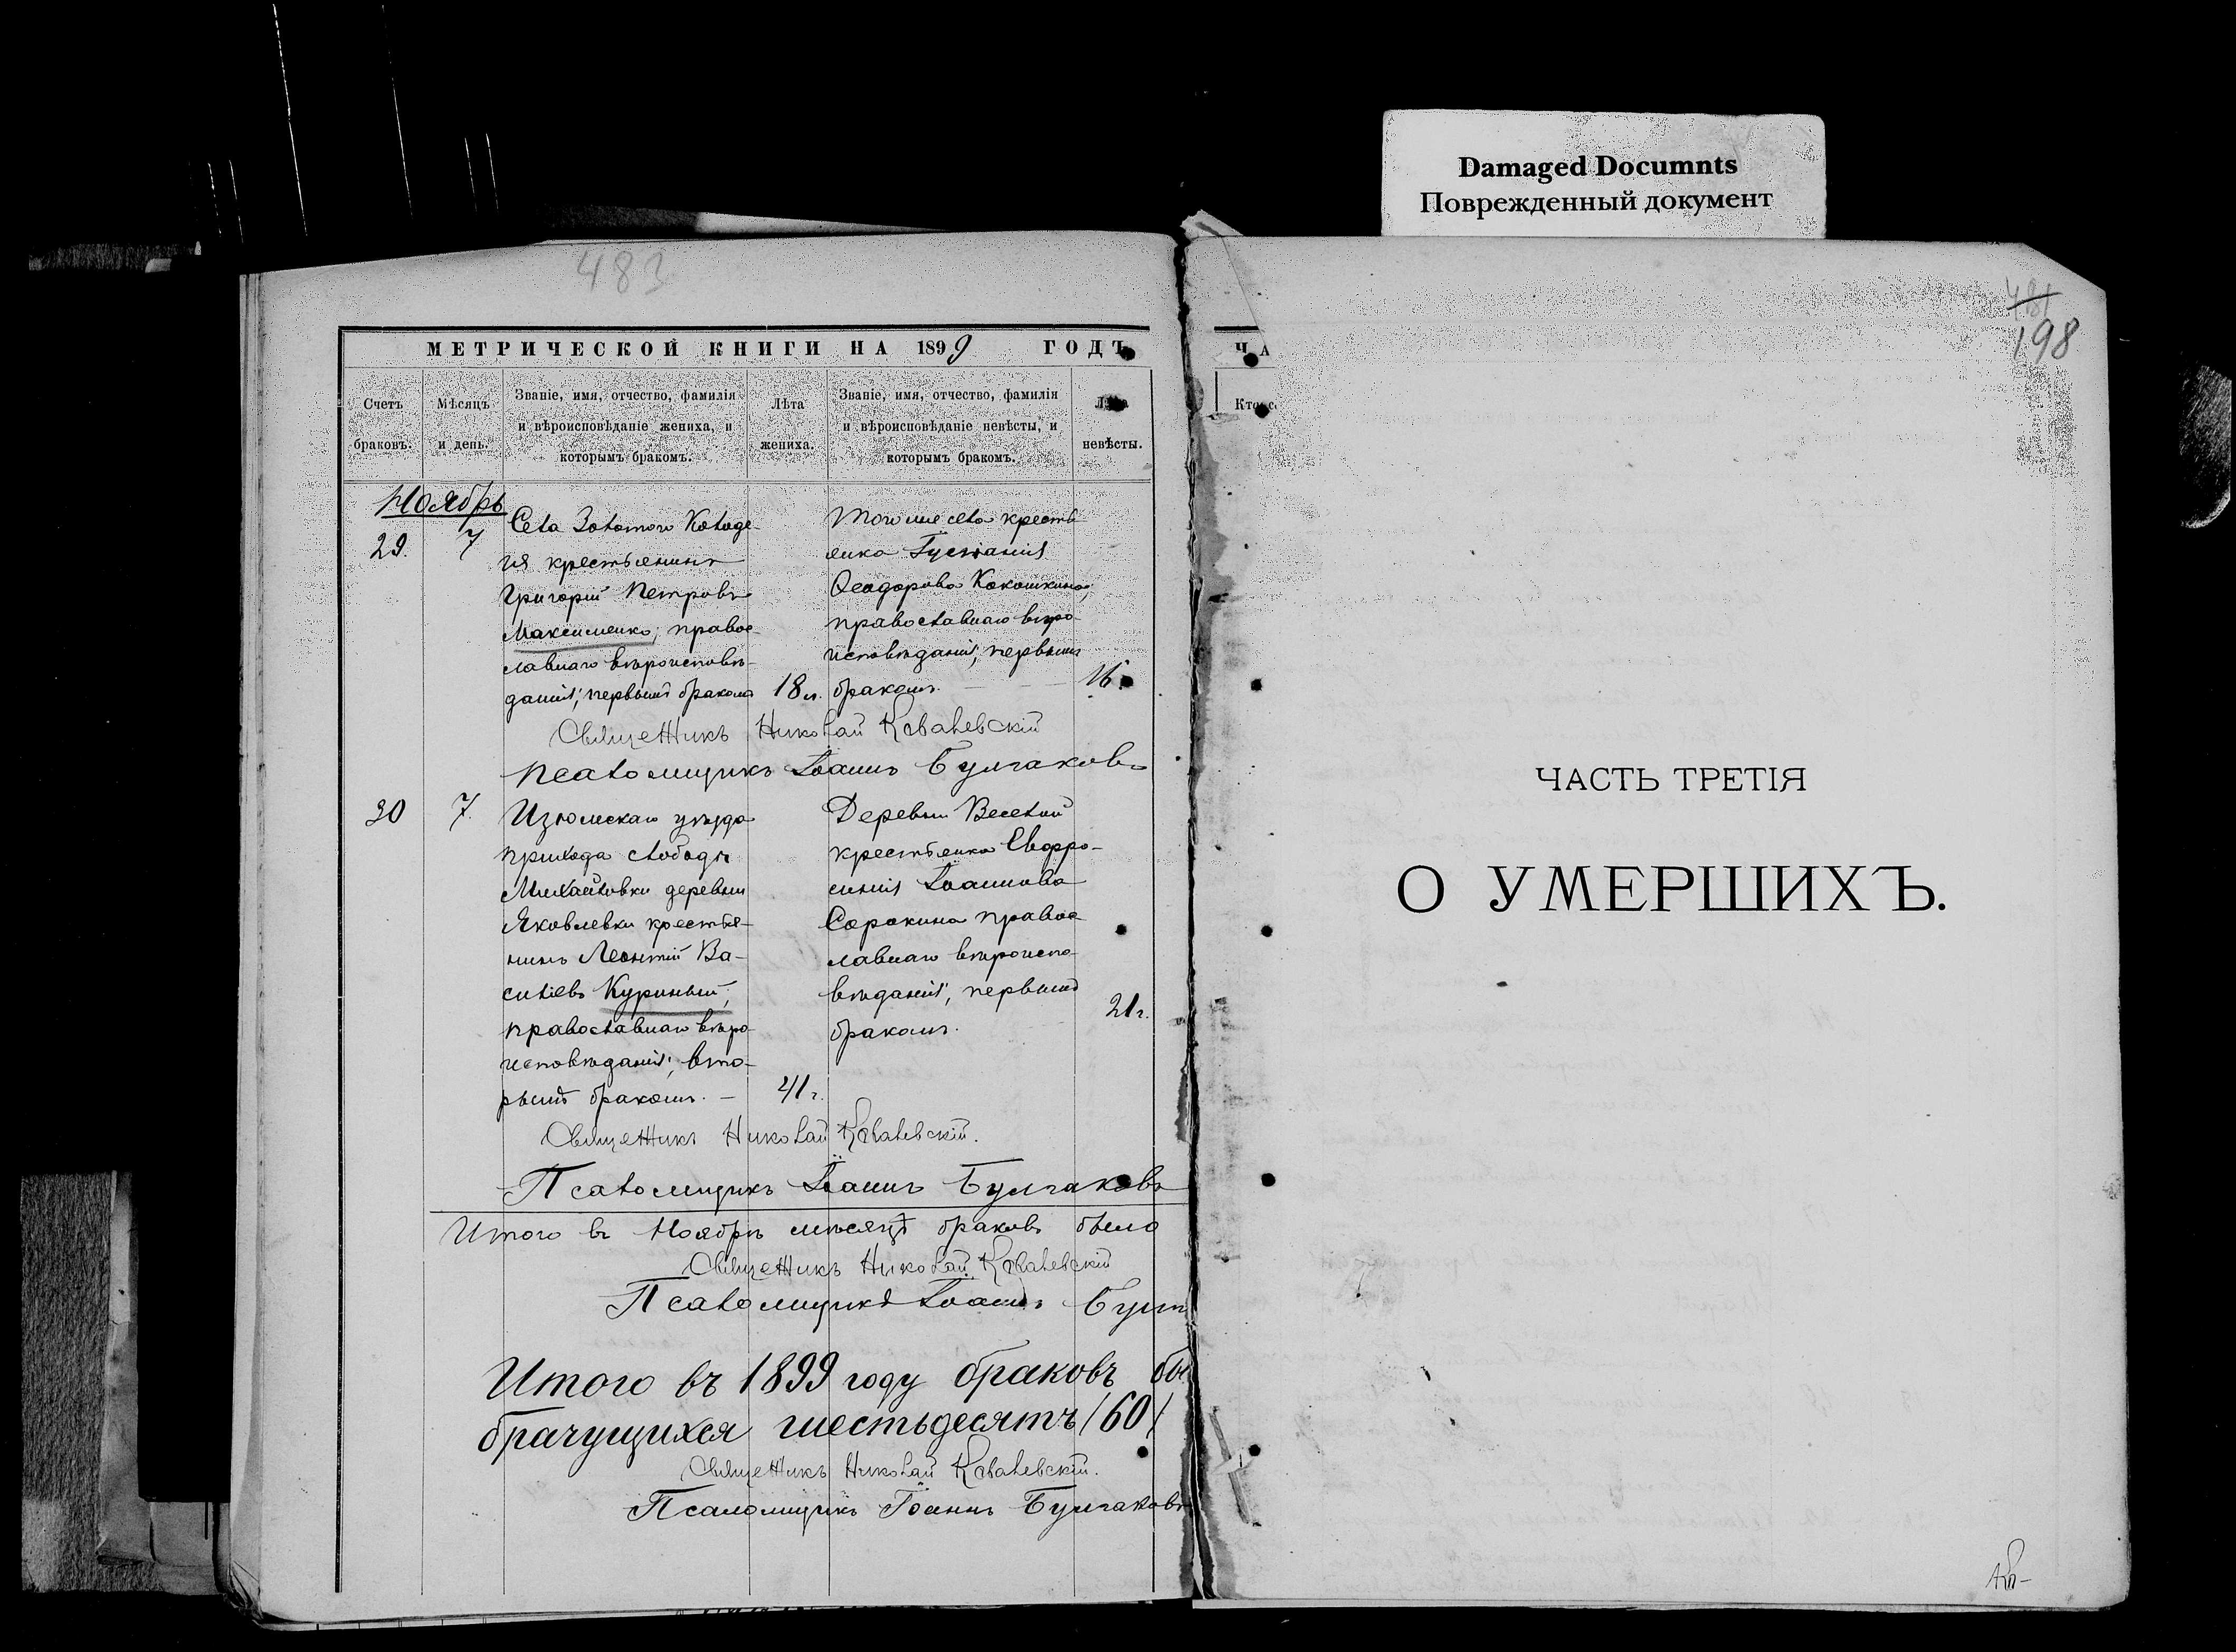 Damaged Documnts
Поврежденный документ
483
481
198
МЕТРИЧЕСКОЙ КНИГИ НА 1899 ГОДЪ
ЧА
Счетъ браковъ.
Мѣсяцъ и день.
Званіе, имя, отчество, фамилія
и вѣроисповѣданіе жениха, и
которымъ бракомъ.
Лѣта жениха.
Званіе, имя, отчество, фамилія
и вѣроисповѣданіе невѣсты, и
которымъ бракомъ.
Лѣта невѣсты.
Кто с
Ноябрь
29. 7
Села Золотого Колоде-
зя крестьянинъ
Григорій Петровъ
Максименко, правос-
лавнаго вѣроисповѣ-
данія, первымъ бракомъ 18 л.
Того же села кресть
янка
Ѳеодорова Кокошкина,
православнаго вѣро-
исповѣданія, первымъ
бракомъ. 16
Священникъ Николай Ковалевскій
Псаломщикъ Іоаннъ Булгаковъ
30 7.
Изюмскаго уѣзда
прихода слободы
Михайловки деревни
Яковлевки крестья-
нинъ Леонтій Ва-
сильевъ Куриный,
православнаго вѣро-
исповѣданія, вто-
рымъ бракомъ. — 41 г.
Деревни Веселой
крестьянка Евфро-
синія Іоаннова
Сорокина правос
лавнаго вѣроиспо-
вѣданія, первымъ
бракомъ. 21 г.
Священникъ Николай Ковалевскій.
Псаломщикъ Іоаннъ Булгаковъ
Итого въ Ноябрѣ мѣсяцѣ браковъ было
Священникъ Николай Ковалевскій
Псаломщикъ Іоаннъ Булг
Итого въ 1899 году браковъ бы
брачущихся шестьдесятъ (60)
Священникъ Николай Ковалевскій.
Псаломщикъ Іоаннъ Булгаковъ
ЧАСТЬ ТРЕТІЯ
О УМЕРШИХЪ.